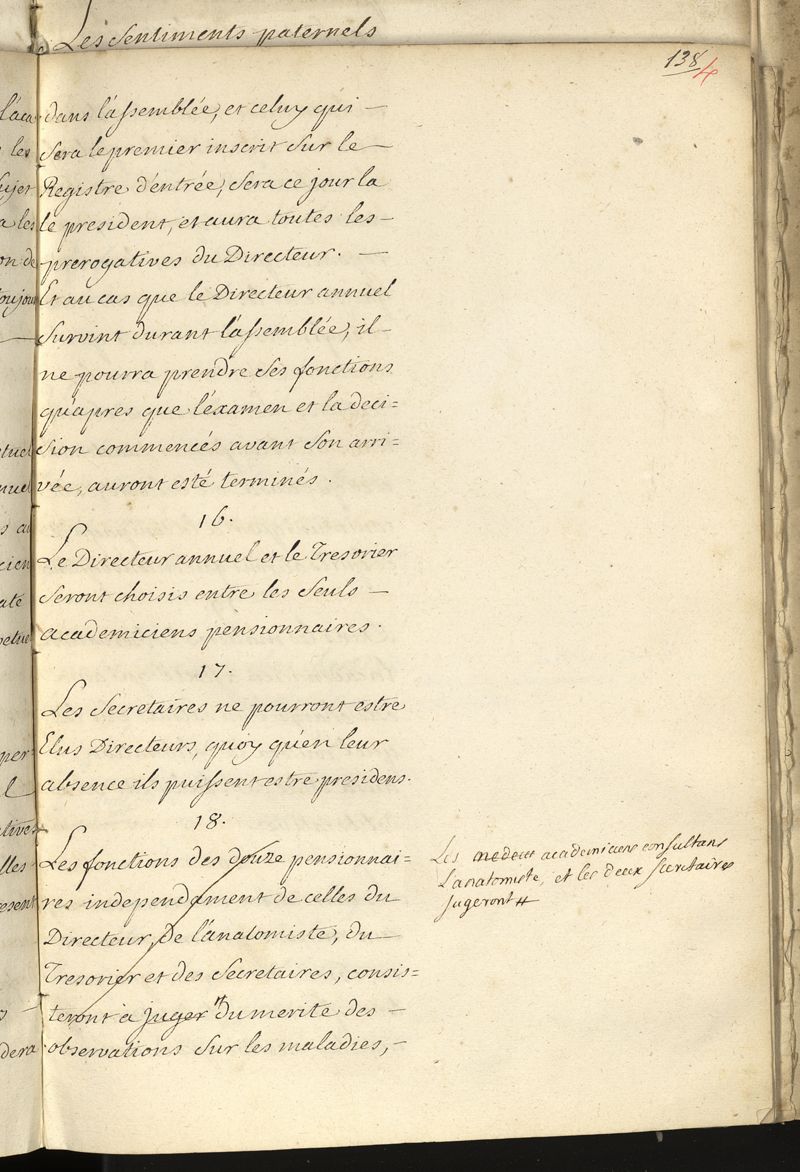 Les sentiments paternels
138
4
dans l'assemblée, et celuy qui —
sera le premier inscrit sur le —
Registre d'entrée, sera ce jour la
le president, et aura toutes les —
prerogatives du Directeur. —
Et au cas que le Directeur annuel
survint durant l'assemblée, il —
ne pourra prendre ses fonctions
qu'apres que l'éxamen et la deci=
sion commencés avant son arri=
vée, auront esté terminés.
16.
Le Directeur annuel et le Tresorier
seront choisis entre les seuls —
academiciens pensionnaires.
17.
Les Secretaires ne pourront estre
Elus Directeurs, quoy qu'en leur
absence ils puissent estre presidens.
18.
Les fonctions des douze pensionnai=
res independament de celles du
Directeur, de l'anatomiste, du —
Tresorier et des Secretaires, consis=
teront à juger # du merite des —
observations sur les maladies, —
Les academiciens consultans
L'anatomiste, et les deux secretaires
jugeront #